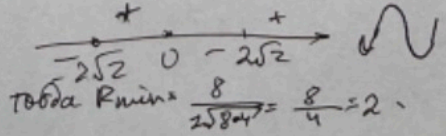 + +
-2√2 0 - 2√2
тогда Rmin = 8/(2√(8-4)) = 8/4 = 2.